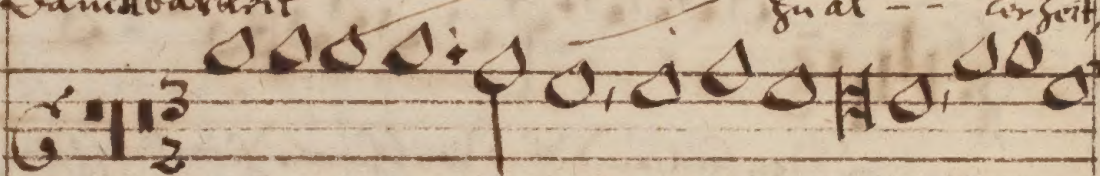 Danckbarkeit zu al - - ler Zeit
3
2